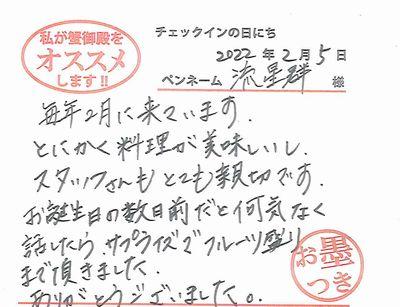 私が蟹御殿を
オススメ
します!!
チェックインの日にち
2022年2月5日
ペンネーム 流星群 様
毎年2月に来ています.
とにかく料理が美味しいし.
スタッフさんもとても親切です.
お誕生日の数日前だと何気なく
話したら.サプライズでフルーツ盛り
まで頂きました.
ありがとうございました。
お墨
つき